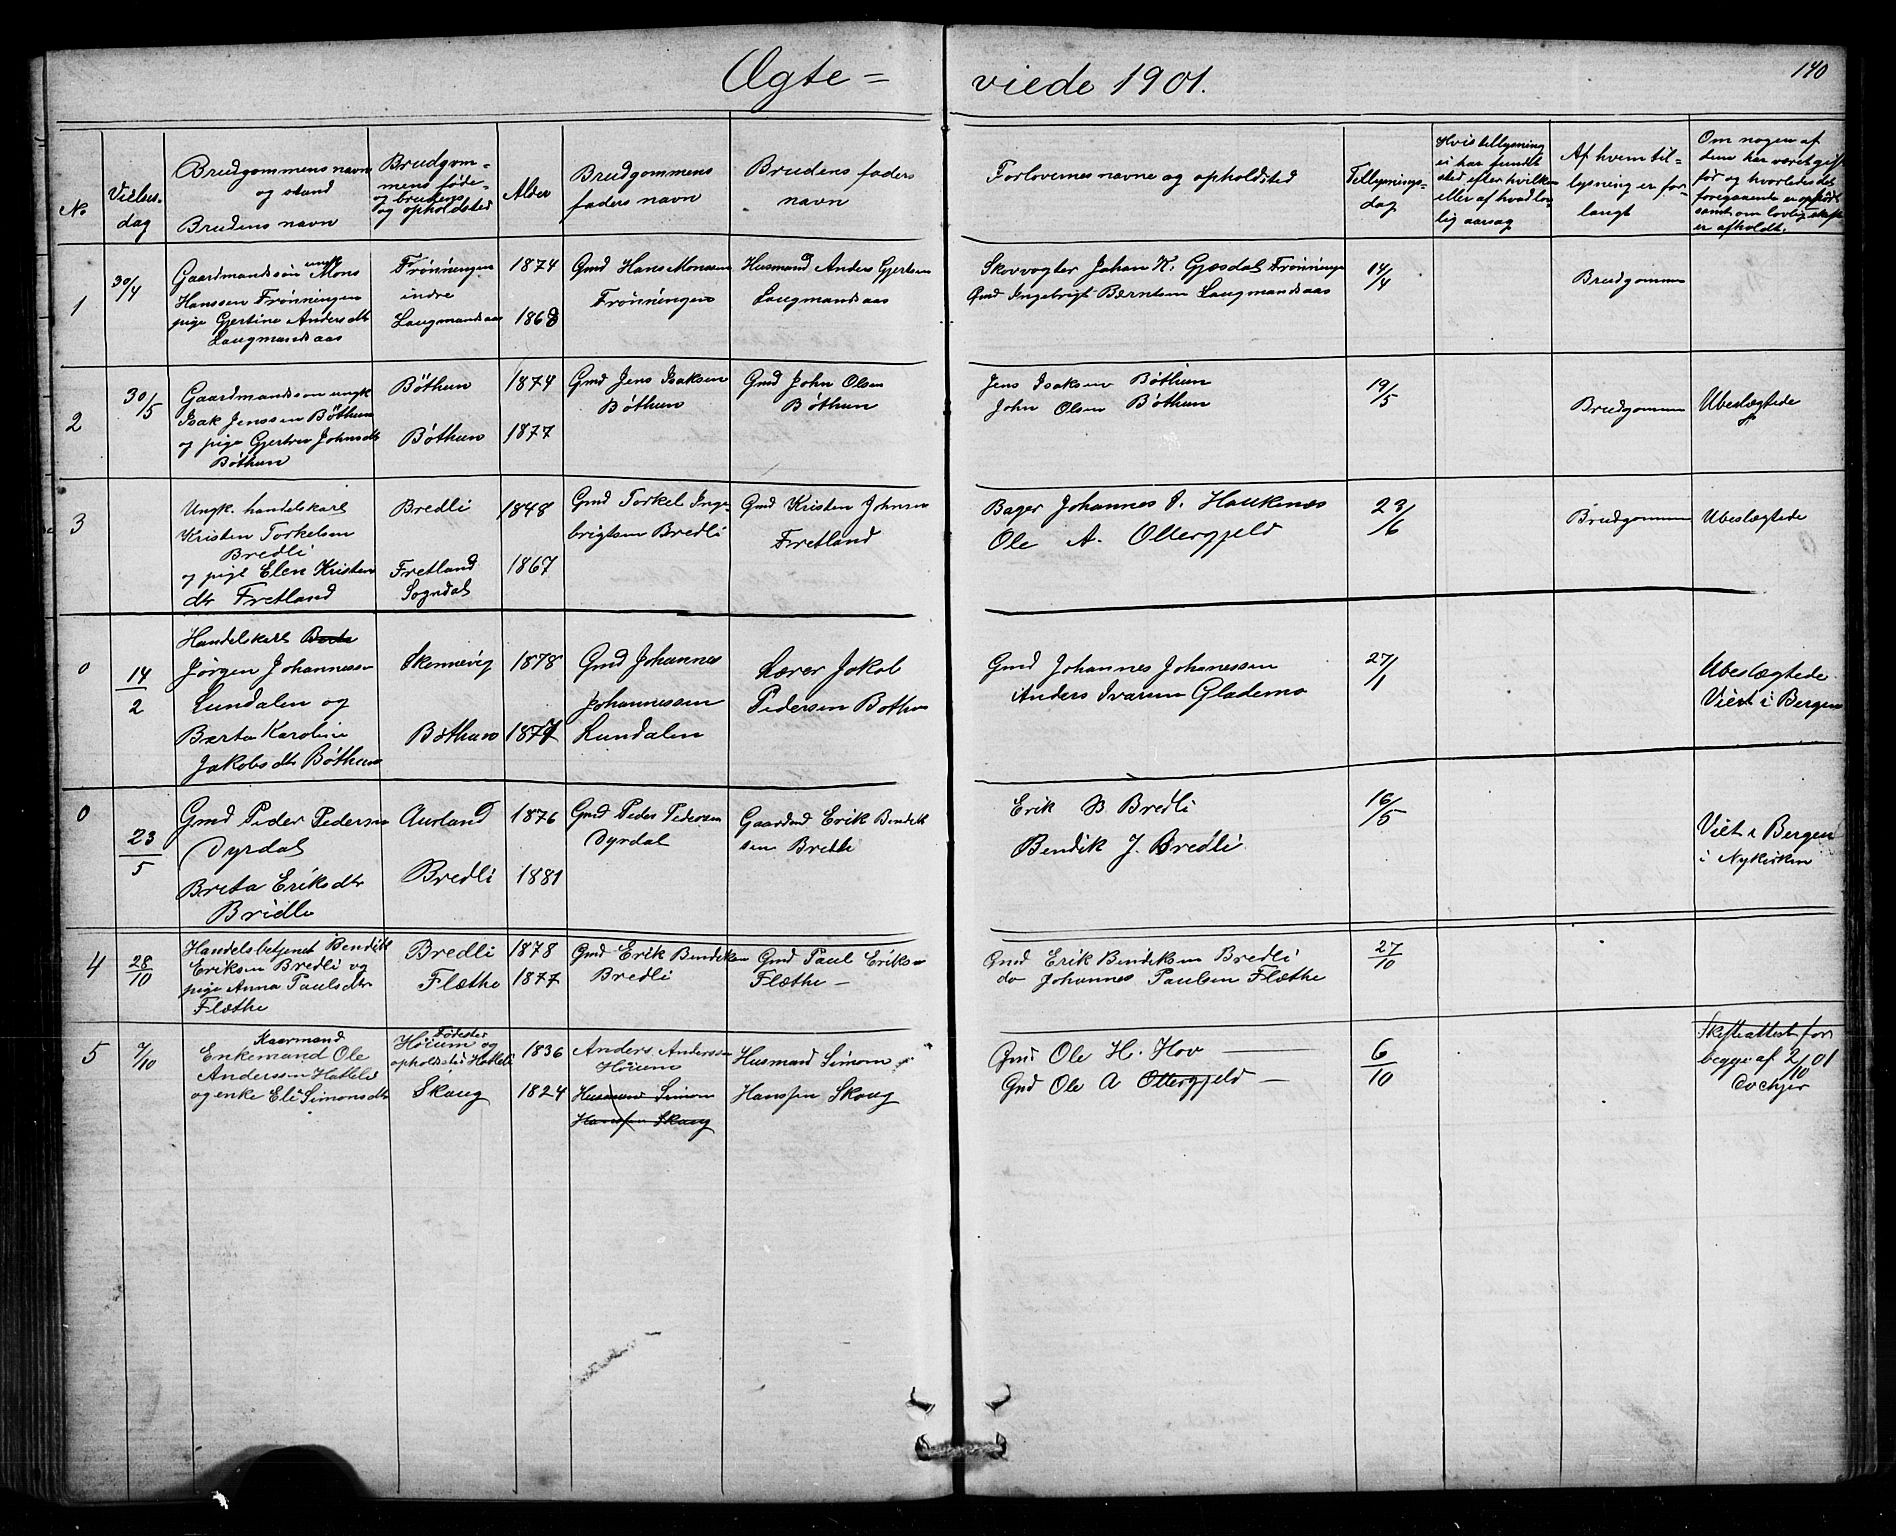 Ægte = viede 1901.
140
No
Vielses-
dag
Brudgommens navn
og stand
Brudens navn
Brudgom=
mens føde-
og brudens
og opholdsted
Alder
Brudgommens
faders navn
Brudens faders
navn
Forlovernes navne og opholdsted
Tillysnings-
dag
Hvis tillysning
ei har fundet
sted efter hvilken
eller af hvad lov-
lig aarsag
Af hvem til-
lysning er for-
langt
Om nogen af
dem har været gift
før og hvorledes det
foregaaende er opløst
samt om lovlig skifte
er afholdt.
1
30/4
Gaardmandssøn ungk Mons
Hanssen Frønningen
pige Gjertine Andersdtr
Laugmandsaas
Frønningen
indre
Laugmandsaas
1874
1868
Gmd Hans Monsen
Frønningen
Husmand Anders Gjertsen
Laugmandsaas
Skovvogter Johan K. Gjesdal Frønningen
Gmd Ingebrigt Berntsen Laugmandsaas
14/4
Brudgommen
2
30/5
Gaardmandssøn ungk
Isak Jenssen Bøthun
og pige Gjertru Johnsdtr
Bøthun
Bøthun
Bøthun
1874
1877
Gmd Jens Isaksen
Bøthun
Gmd John Olsen
Bøthun
Jens Isaksen Bøthun
John Olsen Bøthun
19/5
Brudgommen
Ubeslægtede
3
Ungk. handelskarl
Kristen Torkelsen
Bredli
og pige Elen Kristen
dtr Fretland
Bredli
Fretland
Sogndal
1848
1867
Gmd Torkel Inge
brigtsen Bredli
Gmd Kristen Johnsen
Fretland
Bager Johannes J. Haukenæs
Ole A. Ottergjeld
23/6
Brudgommen
Ubeslægtede
0
14/2
Handelskarl Berta
Jørgen Johannessen
Lundalen og
Berta Karoline
Jakobsdtr Bøthun
Skonnevig
Bøthun
1878
1877
Gmd Johannes
Johannessen
Lundalen
Lærer Jakob
Pedersen Bothun
Gmd Johannes Johanessen
Anders Ivarsen Glademo
27/1
Ubeslægtede
Viet i Bergen
0
23/5
Gmd Peder Pedersen
Dyrdal
Breta Eriksdtr
Bridle
Aurland
Bredli
1876
1881
Gmd Peder Pedersen
Dyrdal
Gaardmd Erik Bendik
sen Bredli
Erik B Bredli
Bendik J. Bredli
16/5
Viet i Bergen
i Nykirken
4
28/10
Handelsbetjent Bendik
Eriksen Bredli og
pige Anna Paulsdtr
Flæthe
Bredli
Flæthe
1878
1877
Gmd Erik Bendiksen
Bredli
Gmd Paul Eriksen
Flæthe —
Gmd Erik Bendiksen Bredli
do Johannes Paulsen Flæthe
27/10
5
7/10
Kaarmand
Enkemand Ole
Anderssen Hatteli
og enke Eli Simonsdtr
Fødested
Hørum og
opholdsted Hatteli
Skaug
1836
1824
Anders Anderssen
Hørum
Husmand Simon
Hanssen Skaug
Husmand Simon
Hanssen Skaug
Gmd Ole H. Hov —
Gmd Ole A Ottergjeld —
6/10
Skifteattest for
begge af 2/10 01